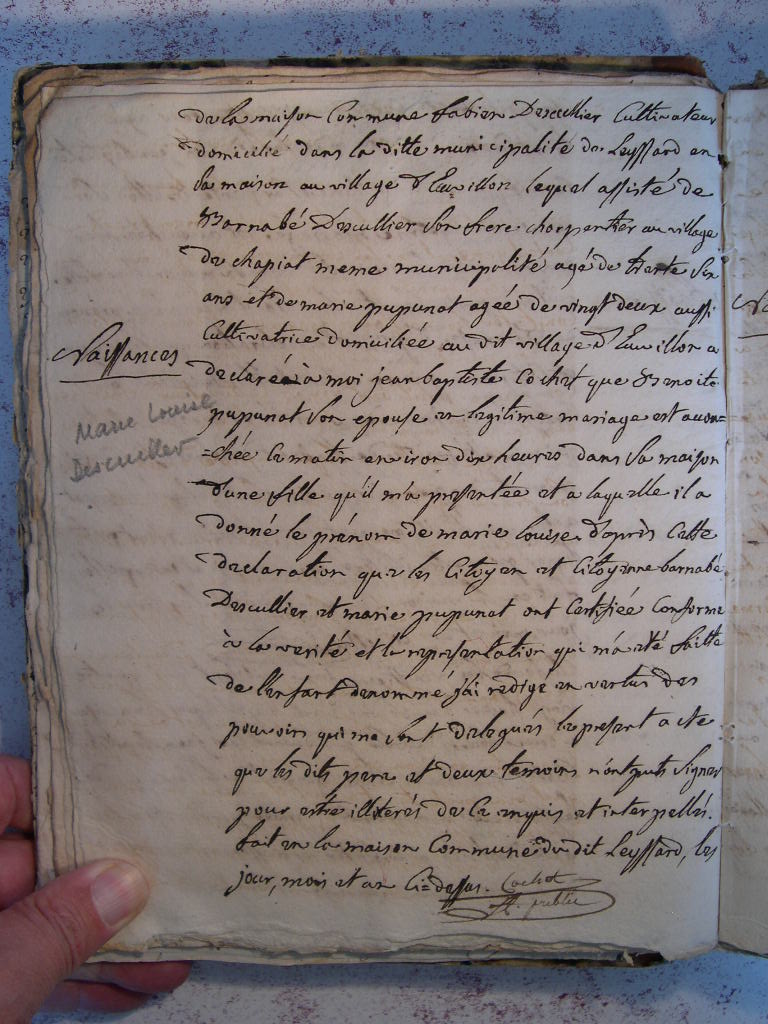 de la maison Commune fabien Descullier Cultivateur
domicilié dans la ditte municipalité de Leyssard en
Sa maison au village d'Euvillon lequel assisté de
Barnabé Descullier Son frere charpentier au village
de chapiat meme municipolité agé de trente Six
ans et de marie pupunat ageé de vingt deux aussi
Cultivatrice domiciliée au dit village d'Euvillon a
Naissances
declaré à moi jean baptiste Cochet que Benoite
Marie Louise
pupunat Son epouse en legitime mariage est accou=
Descullier
=chée Ce matin environ dix heures dans Sa maison
d'une fille qu'il m'a presentée et a laquelle il a
donné le prénom de marie louise. d'après Cette
declaration que les Citoyen et Citoyenne barnabé
Descullier et marie pupunat ont Certifiée Conforme
à la verité et la representation qui m'a été faitte
de l'enfant denommé j'ai redigé en vertus des
pouvoirs qui me Sont delegués le present acte
que les dits pere et deux temoins n'ont puts Signer
pour estre illiterés de Ce enquis et interpellés.
fait en la maison Commune du dit Leyssard, les
jour, mois et an Ci=dessus. Cochet
public